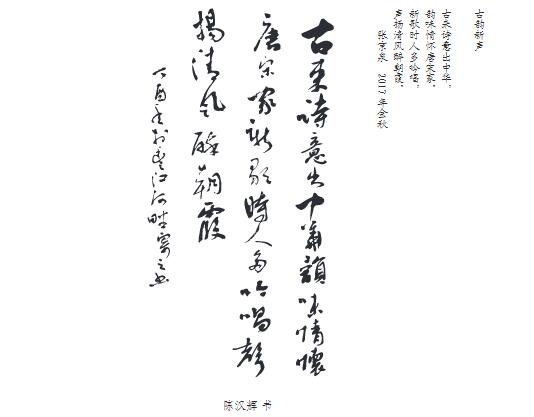 古韵新声
古来诗意出中华，
韵味情怀唐宋家。
新歌时人多吟唱，
声扬清风醉朝霞。
张京泉 2017年金秋
古来詩意出中華韻味情懷
唐宋家新歌時人多吟唱聲
揚清風醉朝霞
丁酉
江河畔
书
陈汉辉 书